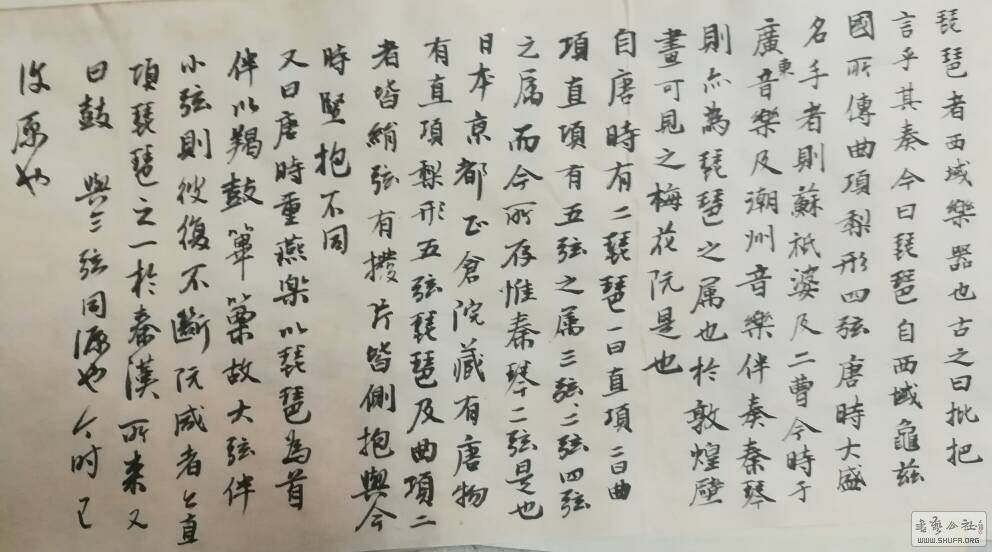 琵琶者西域樂器也古之曰批把
言乎其奏今曰琵琶自西域龜兹
國所傳曲項梨形四弦唐時大盛
名手者則蘇祇婆及二曹今時于
廣東音樂及潮州音樂伴奏秦琴
則亦為琵琶之属也於敦煌壁
畫可見之梅花阮是也
自唐時有二琵琶一曰直項二曰曲
項直項有五弦之属三弦二弦四弦
之属而今所存惟秦琴二弦是也
日本京都正倉院藏有唐物
有直項梨形五弦琵琶及曲項二
者皆絹弦有撥片皆側抱與今
時竪抱不同
又曰唐時重燕樂以琵琶為首
伴以羯鼓篳篥故大弦伴
小弦則彼復不斷阮咸者亦直
項琵琶之一於秦漢所来又
曰鼓 與三弦同源也今时已
没原也
書藝公社
WWW.SHUFA.ORG